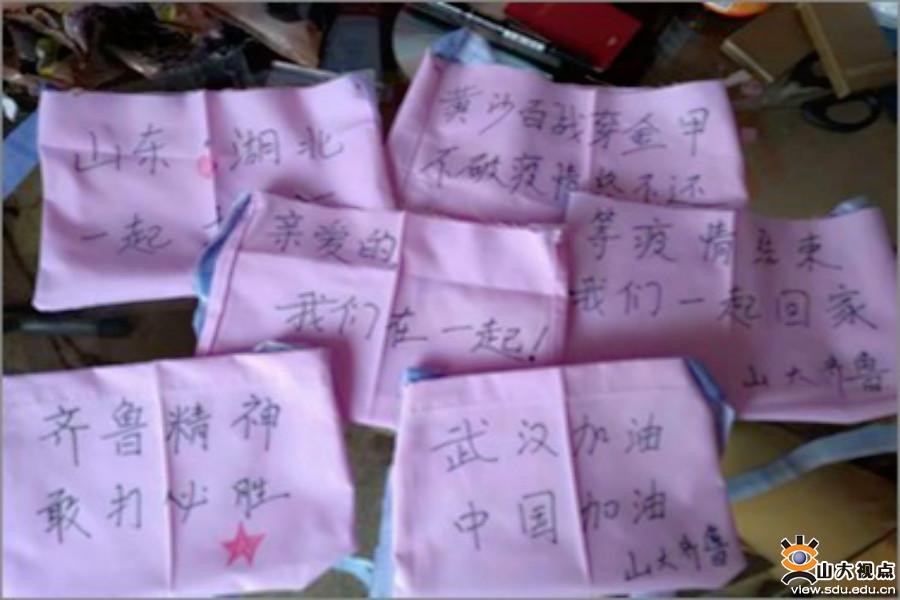 山东 湖北
一起
黄沙百战穿金甲
不破疫情终不还
亲爱的
我们在一起!
等疫情结束
我们一起回家
山大齐鲁
齐鲁精神
敢打必胜
武汉加油
中国加油
山大齐鲁
山大视点
view.sdu.edu.cn